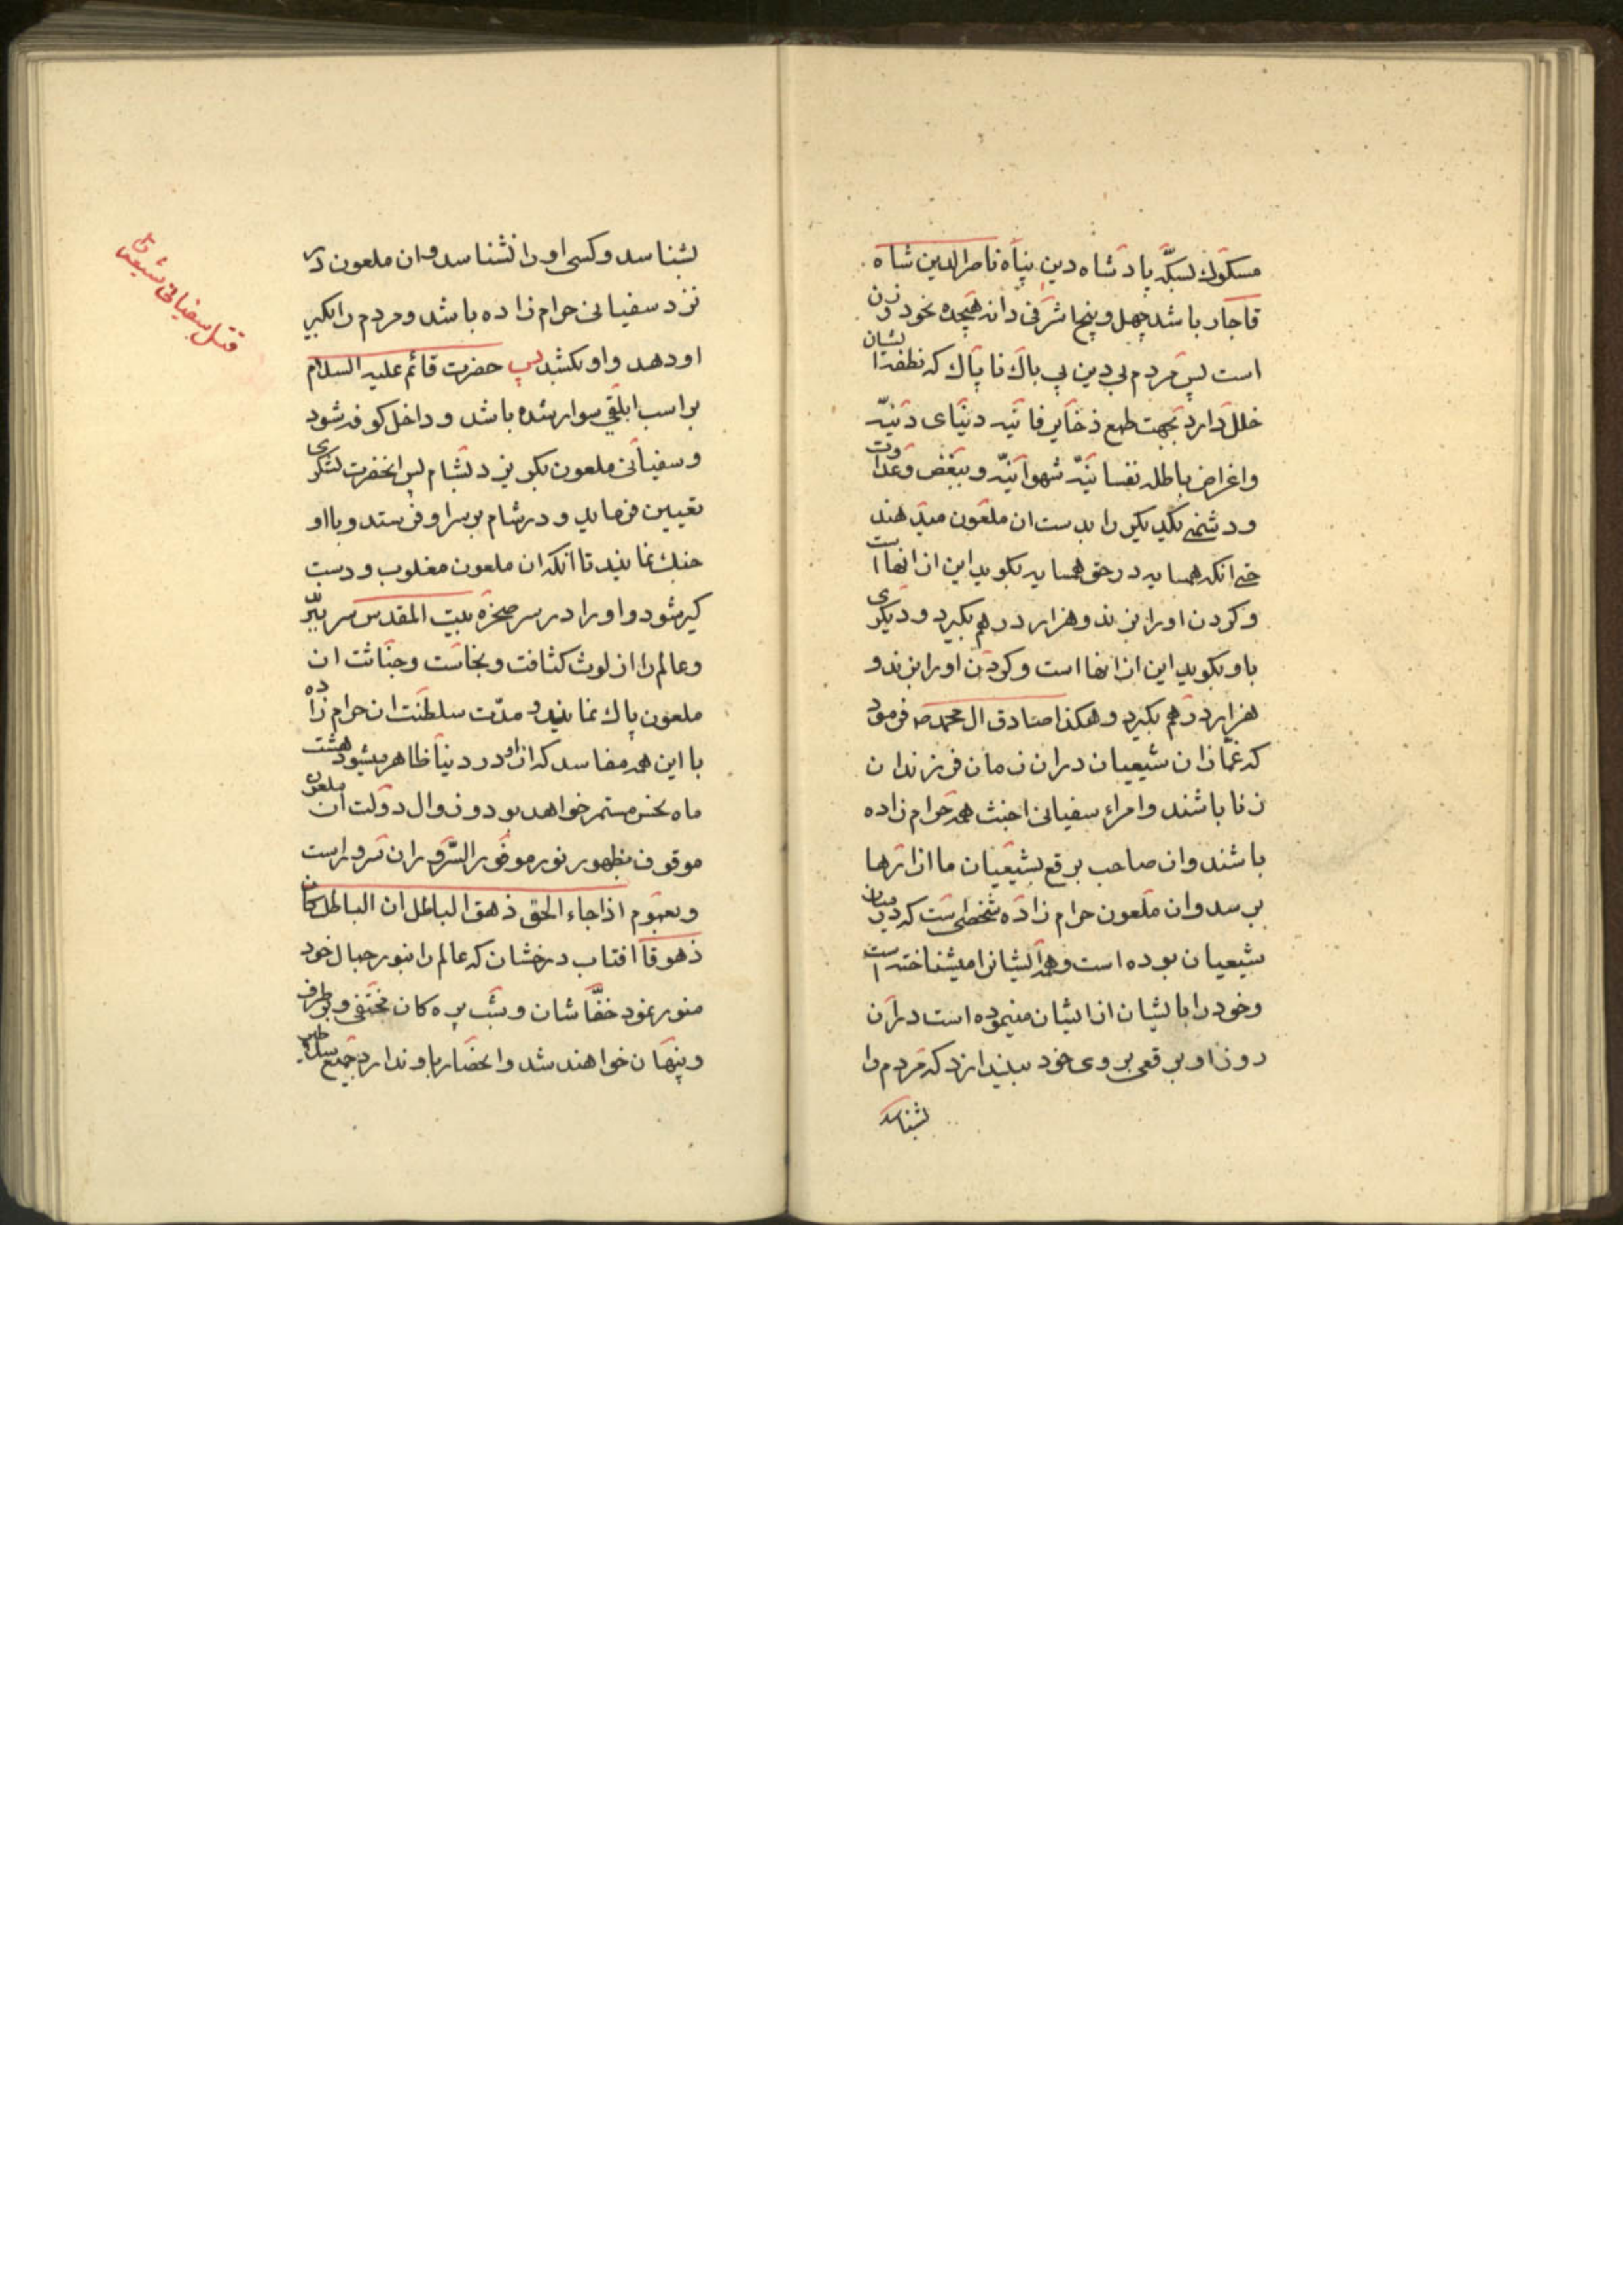 مسکوك بسکّه پادشاه دین پناه ناصرالدین شاه
قاجار باشد چهل و پنج اشرفی دانه هیجده نخود وزن
است پس مردم بی دین بی باك ناپاك که نطفه ایشان
خلل دارد بجهت طمع ذخایر فانیه دنیای دنیّه
واغراض باطله نفسانیّه شهوانیّه وببغض وعداوت
ودشمنی یکدیکر را بدست ان ملعون میدهند
حتی انکه همسایه در حق همسایه بکوید این از انها است
وکردن اورا بزند وهزار درهم بکیرد ودیکری
باو بکوید این از انها است وکردن اورا بزند و
هزار درهم بکیرد وهکذا صادق ال محمد ص فرمود
که غمّازان شیعیان دران زمان فرزندان
زنا باشند وامراء سفیانی اخبث همه حرام زاده
باشند وان صاحب برقع بشیعیان ما ازارها
برسد وان ملعون حرام زاده شخصی است که در میان
شیعیان بوده است وهمه ایشانرا میشناخته است
وخود را با ایشان از ایشان مینموده است دران
روز او برقعی بروی خود بیندازد که مردم را
بشناسد
بشناسد وکسی اورا نشناسد وان ملعون در
نزد سفیانی حرام زاده باشد ومردم را بکیر
او دهد واو بکشد پس حضرت قائم علیه السلام
بر اسب ابلقی سوار شده باشد وداخل کوفه شود
وسفیانی ملعون بکریزد بشام پس انحضرت لشکری
تعیین فرماید ودر شام بر سر او فرستد وبا او
جنك نمایند تا انکه ان ملعون مغلوب ودست
کیر شود واورا در سر صخره بیت المقدس سر ببّر
وعالم را از لوث کثافت ونجاست وخباثت ان
ملعون پاك نمایند ومدّت سلطنت ان حرام زاده
با این همه مفاسد که از او در دنیا ظاهر میشود هشت
ماه نحس مستمر خواهد بود وزوال دولت ان ملعون
موقوف بظهور نور موفور السّرور ان سرور است
وبعموم اذا جاء الحق ذهق الباطل ان الباطل کان
ذهوقا افتاب درخشان که عالم را بنور جمال خود
منور نمود خفّاشان وشب پره کان مختفی وبرطرف
وپنهان خواهند شد وانحصار باو ندارد جمیع سلاطین
قتل سفیانی شیعیان